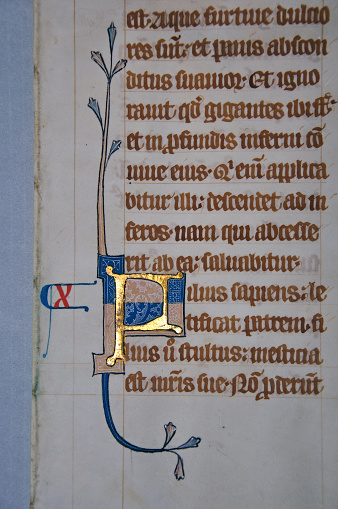 est. Aque furtiue dulcio
res sūt. et panis abscon
ditus suauior. Et igno
rauit qđ gigantes ibi sīt.
et in ꝓfundis inferni cō
uiue eius. Qi eīm applica
bitur illi: descendet ad in
feros. nam qui abcesse
rit ab ea: saluabitur.
X Filius sapiens: le
tificat patrem. fi
lius ů stultus: mesticia
est mr̄is sue. Nō ꝓderūt